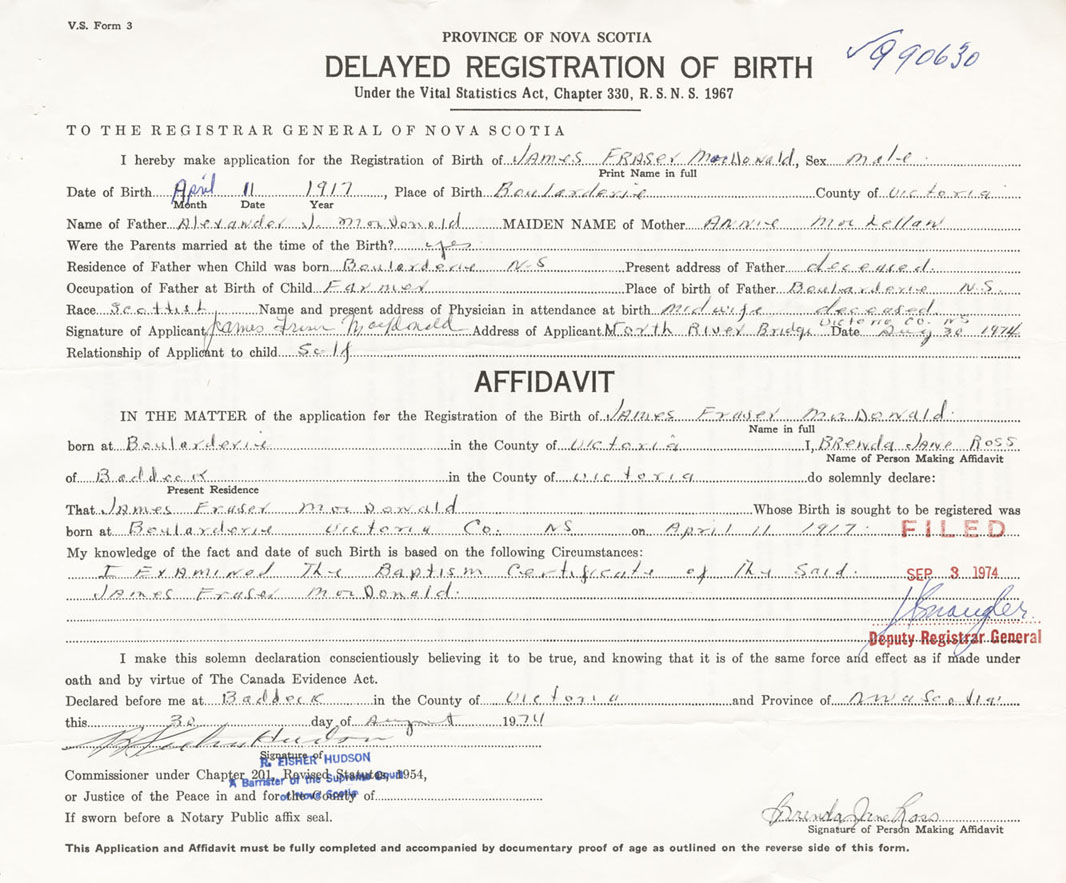 V.S. Form 3
PROVINCE OF NOVA SCOTIA
990630
DELAYED REGISTRATION OF BIRTH
Under the Vital Statistics Act, Chapter 330, R. S. N. S. 1967
TO THE REGISTRAR GENERAL OF NOVA SCOTIA
I hereby make application for the Registration of Birth of James Fraser MacDonald, Sex male
Print Name in full
Date of Birth April 11 1917, Place of Birth Boularderie County of Victoria
Month Date Year
Name of Father Alexander J. MacDonald MAIDEN NAME of Mother Annie MacLellan
Were the Parents married at the time of the Birth? yes
Residence of Father when Child was born Boularderie N-S Present address of Father deceased.
Occupation of Father at Birth of Child Farmer Place of birth of Father Boularderie N.S.
Race Scottish Name and present address of Physician in attendance at birth midwife deceased
Victoria Co. NS
Signature of Applicant James MacDonald Address of Applicant North River Bridge Date Aug 30 1974
Relationship of Applicant to child Self
AFFIDAVIT
IN THE MATTER of the application for the Registration of the Birth of James Fraser MacDonald
Name in full
born at Boularderie in the County of Victoria I, Brenda Jane Ross
Name of Person Making Affidavit
of Baddeck in the County of Victoria do solemnly declare:
Present Residence
That James Fraser MacDonald Whose Birth is sought to be registered was
born at Boularderie Victoria Co. NS on April 11 1917. FILED
My knowledge of the fact and date of such Birth is based on the following Circumstances:
I Examined The Baptism Certificate of The Said. SEP 3 1974
James Fraser MacDonald.
Deputy Registrar General
I make this solemn declaration conscientiously believing it to be true, and knowing that it is of the same force and effect as if made under
oath and by virtue of The Canada Evidence Act.
Declared before me at Baddeck in the County of Victoria and Province of
this 30 day of August 1974
Hudson
Signature of
R. FISHER HUDSON
Commissioner under Chapter 201, Revised Statutes, 1954,
A Barrister of the Supreme Court
or Justice of the Peace in and for the County of
of Nova Scotia
If sworn before a Notary Public affix seal.
Brenda Jane Ross
Signature of Person Making Affidavit
This Application and Affidavit must be fully completed and accompanied by documentary proof of age as outlined on the reverse side of this form.